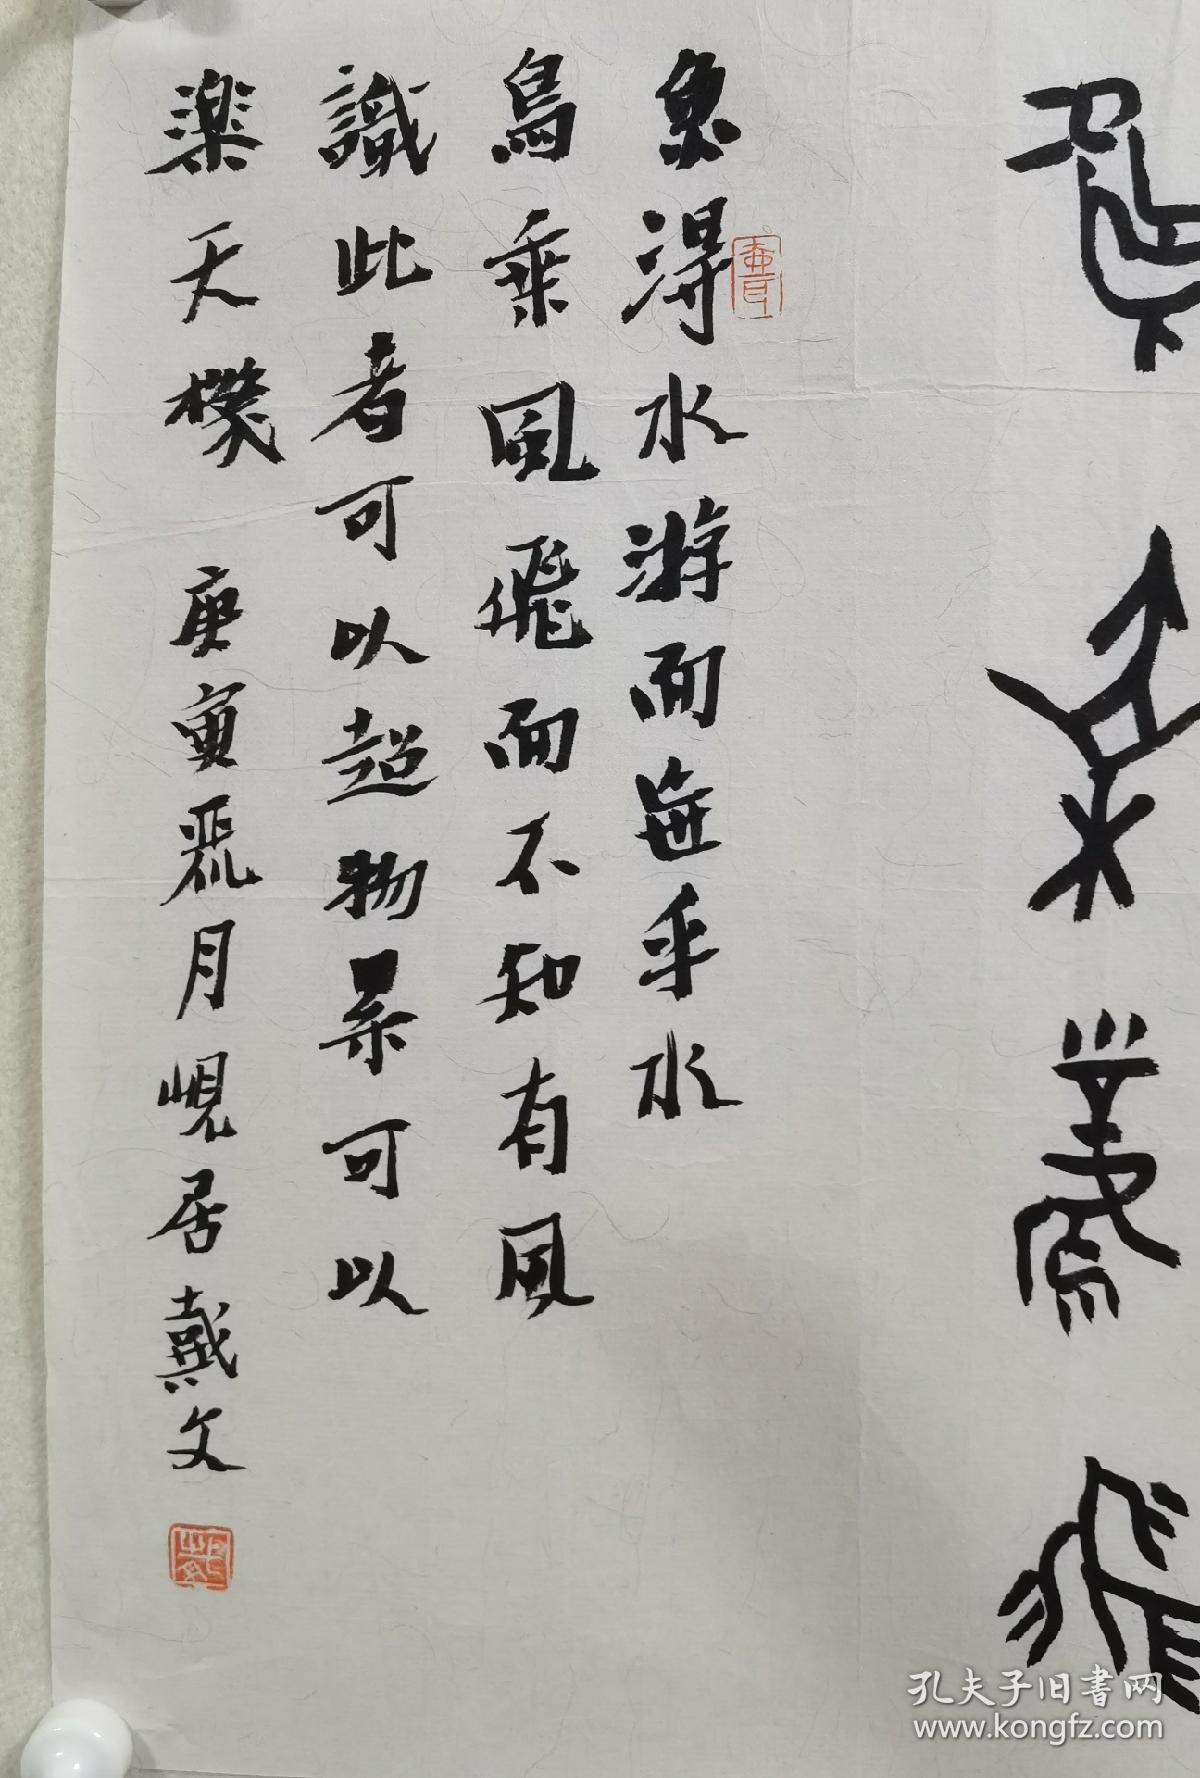 魚得水游而乎水
鳥乘風飛而不知有風
識此者可以超物累可以
楽天機 庚寅月峴居戴文
孔夫子旧書网
www.kongfz.com